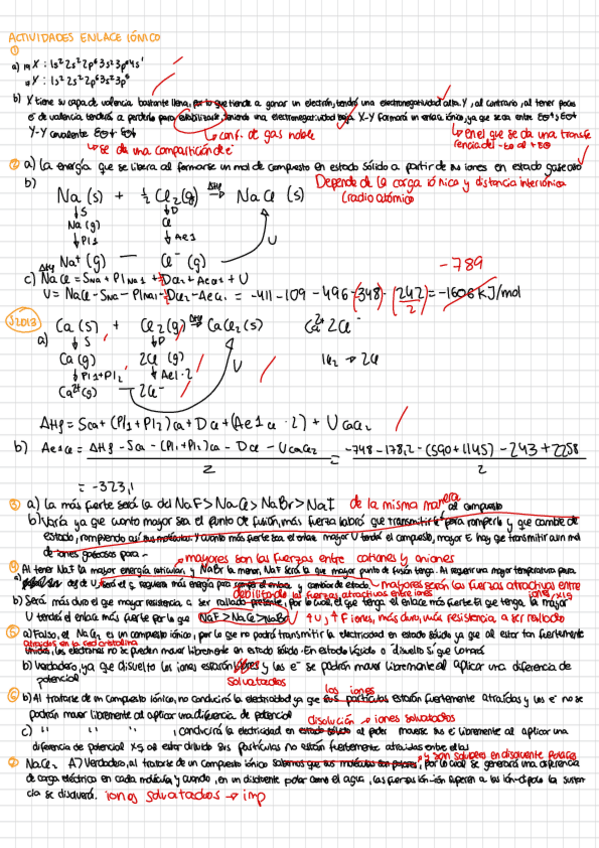 ACTIVIDADES ENLACE IÓNICO
①
a) 19X : 1s² 2s² 2p⁶ 3s² 3p⁶ 4s¹
Y : 1s² 2s² 2p⁶ 3s² 3p⁵
b) X tiene su capa de valencia bastante llena, por lo que tiende a ganar un electrón, tendrá una electronegatividad alta. Y, al contrario, al tener pocos
e⁻ de valencia tenderá a perderlos para estabilizarse, teniendo una electronegatividad baja. X-Y formará un enlace iónico, ya que se da entre
Y-Y covalente
conf. de gas noble
en el que se da una transfe
rencia del -EO al +EO
se da una compartición de e⁻
② a) La energía que se libera al formarse un mol de compuesto en estado sólido a partir de sus iones en estado gaseoso
b)
Depende de la carga iónica y distancia interiónica
(radio atómico
Na (s) + ½ Cl₂(g) ΔHf → NaCl (s)
↓S ↓D
Na (g) Cl
↓PI1 ↓Ae1 U
Na⁺ (g) — Cl⁻ (g)
-789
c) ΔHf NaCl = SNa + PINa1 + ½DCl2 + AeCl1 + U
U = NaCl - SNa - PINa1 - ½DCl2 - AeCl1 = -411 - 109 - 496 - (-348) - (242/2) = -1606 kJ/mol
J2013
Ca (s) + Cl₂(g) ΔHf → CaCl₂(s) Ca²⁺ 2Cl⁻
a) ↓S ↓D
Ca (g) 2Cl (g) U 1Cl₂ → 2Cl
↓PI1+PI2 ↓Ae1·2
Ca²⁺(g) — 2Cl⁻
ΔHf = SCa + (PI1 + PI2)Ca + DCl + (Ae1Cl · 2) + UCaCl₂
b) Ae1Cl = ΔHf - SCa - (PI1+PI2)Ca - DCl - UCaCl₂ / 2 = -748 - 178,2 - (590 + 1145) - 243 + 2258 / 2
= -323,1
③ a) La más fuerte será la del NaF > NaCl > NaBr > NaI de la misma manera
al compuesto
b) Varía ya que cuanto mayor sea el punto de fusión, más fuerza habrá que transmitirle para romperlo y que cambie de
estado, rompiendo así sus moléculas. Y cuanto más fuerte sea el enlace mayor U tendrá el compuesto, mayor E hay que transmitir a un mol
de iones gaseosos para
mayores son las fuerzas entre cationes y aniones
④ Al tener NaF la mayor energía reticular, y NaBr la menor, NaF será la que mayor punto de fusión tenga. Al requerir una mayor temperatura para
mayores serán las fuerzas atractivas entre
iones
debilitado las fuerzas atractivas entre iones
b) Será más duro el que mayor resistencia a ser rallado presente, por lo cual, el que tenga el enlace más fuerte. El que tenga la mayor
U tendrá el enlace más fuerte por lo que NaF > NaCl > NaBr ↑U, ↑F iones, más duro, más resistencia a ser rallado
⑤ a) Falso, el NaCl, es un compuesto iónico, por lo que no podrá transmitir la electricidad en estado sólido ya que al estar tan fuertemente
atraídos en la red cristalina
unidos, los electrones no se pueden mover libremente en estado sólido. En estado líquido o disuelto sí que conduce
b) Verdadero, ya que disuelto los iones estarán libres y los e⁻ se podrán mover libremente al aplicar una diferencia de
potencial
solvatados
los iones
⑥ b) Al tratarse de un compuesto iónico, no conducirá la electricidad ya que sus partículas estarán fuertemente atraídas y los e⁻ no se
podrán mover libremente al aplicar una diferencia de potencial
disolución → iones solvatados
c) " " " , conducirá la electricidad en estado sólido al poder moverse sus e⁻ libremente al aplicar una
diferencia de potencial xq al estar diluido sus partículas no están fuertemente atraídas entre ellas
y son solubles en disolvente polares
⑦ NaCl: A) Verdadero, al tratarse de un compuesto iónico sabemos que sus moléculas son polares, por lo cual se generará una diferencia
de carga eléctrica en cada molécula y cuando, en un disolvente polar como el agua, las fuerzas ión-ión superen a las ión-dipolo la sustan
cia se disolverá. iones solvatados → imp